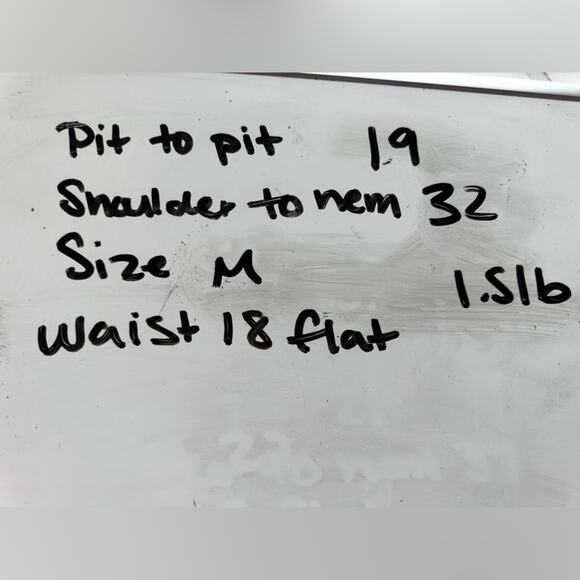 Pit to pit 19
Shoulder to hem 32
Size M
1.5lb
Waist 18 flat